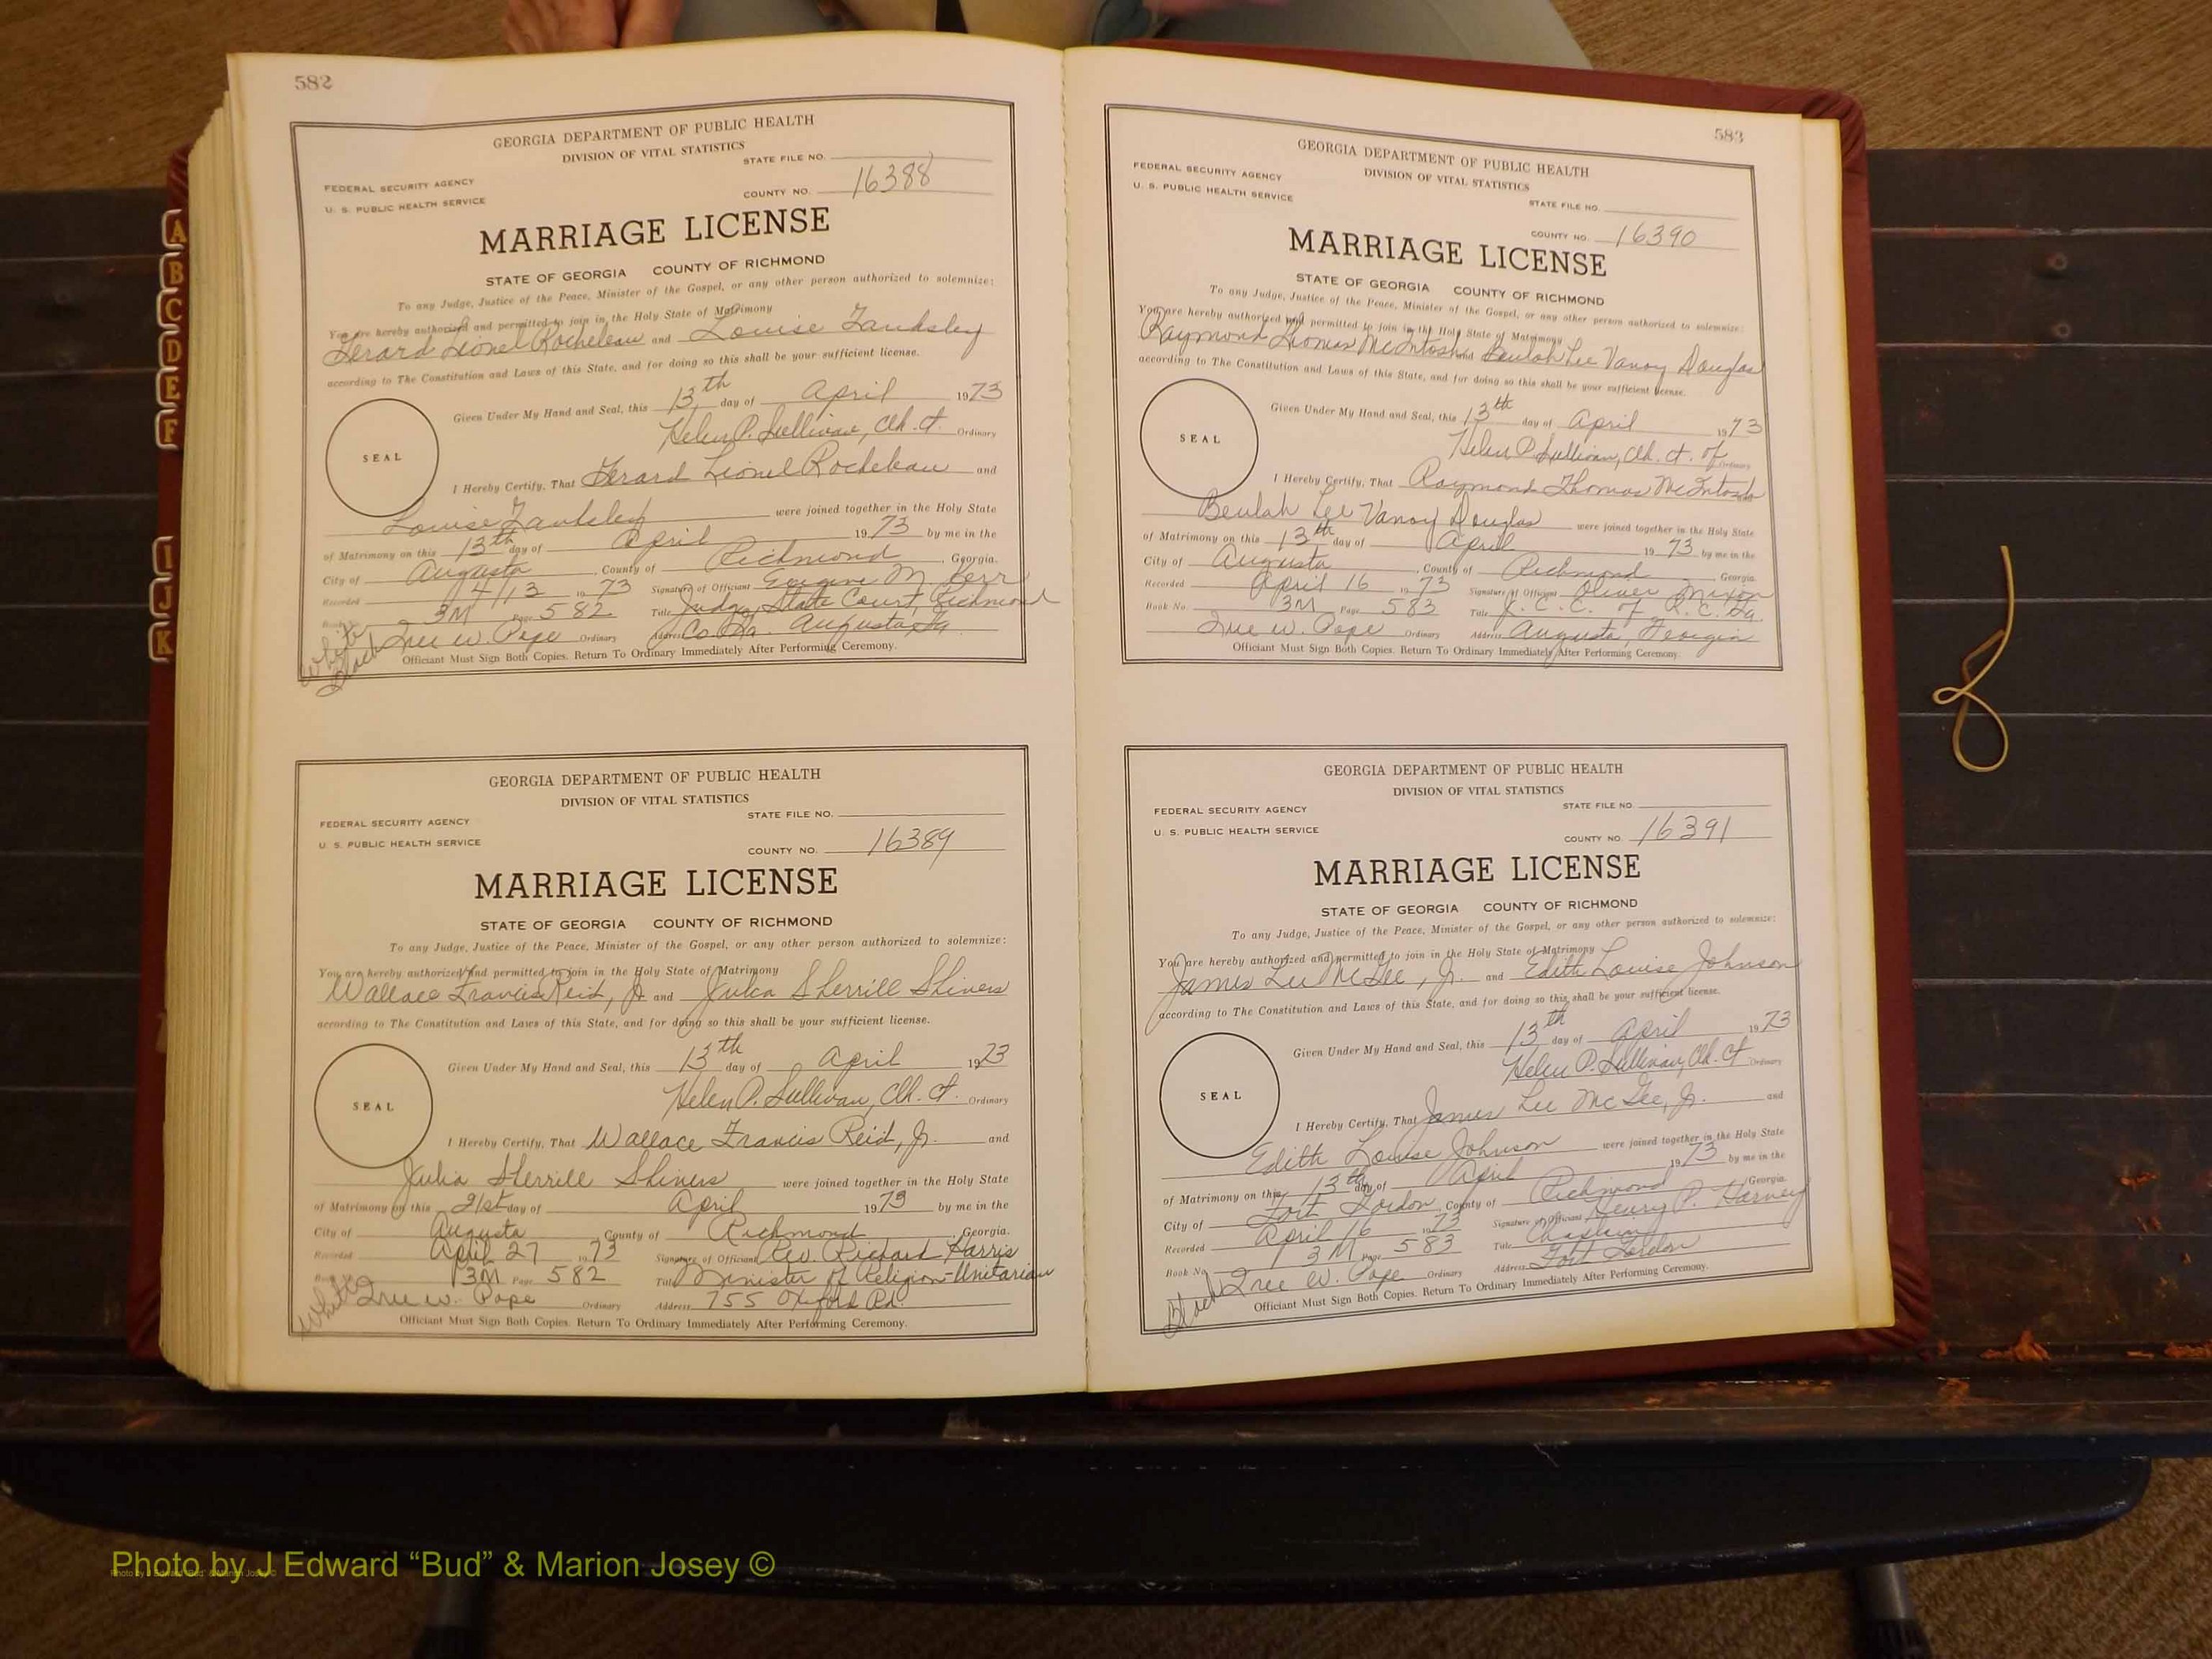 582
GEORGIA DEPARTMENT OF PUBLIC HEALTH
DIVISION OF VITAL STATISTICS
STATE FILE NO.
FEDERAL SECURITY AGENCY
U. S. PUBLIC HEALTH SERVICE
COUNTY NO. 16388
MARRIAGE LICENSE
STATE OF GEORGIA COUNTY OF RICHMOND
To any Judge, Justice of the Peace, Minister of the Gospel, or any other person authorized to solemnize:
You are hereby authorized and permitted to join in the Holy State of Matrimony
Gerard Lionel Rocheleau and Louise
according to The Constitution and Laws of this State, and for doing so this shall be your sufficient license.
Given Under My Hand and Seal, this 13th day of April 1973
Helen P. Sullivan, Clk. Ct. Ordinary
SEAL
I Hereby Certify, That Gerard Lionel Rocheleau and
Louise were joined together in the Holy State
of Matrimony on this 13th day of April 1973 by me in the
City of Augusta, County of Richmond, Georgia.
Recorded 4/13 1973 Signature of Officiant Eugene M. Kerr
Book No. 3M Page 582 Title Judge, State Court, Richmond
Inee W. Pope Ordinary Address Co. Ga. Augusta, Ga.
White
Black
Officiant Must Sign Both Copies. Return To Ordinary Immediately After Performing Ceremony.
GEORGIA DEPARTMENT OF PUBLIC HEALTH
DIVISION OF VITAL STATISTICS
STATE FILE NO.
FEDERAL SECURITY AGENCY
U. S. PUBLIC HEALTH SERVICE
COUNTY NO. 16389
MARRIAGE LICENSE
STATE OF GEORGIA COUNTY OF RICHMOND
To any Judge, Justice of the Peace, Minister of the Gospel, or any other person authorized to solemnize:
You are hereby authorized and permitted to join in the Holy State of Matrimony
Wallace Francis Reid, Jr. and Julia Sherrill Shivers
according to The Constitution and Laws of this State, and for doing so this shall be your sufficient license.
Given Under My Hand and Seal, this 13th day of April 1973
Helen P. Sullivan, Clk. Ct. Ordinary
SEAL
I Hereby Certify, That Wallace Francis Reid, Jr. and
Julia Sherrill Shivers were joined together in the Holy State
of Matrimony on this 21st day of April 1973 by me in the
City of Augusta County of Richmond, Georgia.
Recorded April 27 1973 Signature of Officiant Rev. Richard Harris
Book No. 3M Page 582 Title Minister of Religion-Unitarian
Inee W. Pope Ordinary Address 755 Oxford Rd.
White
Officiant Must Sign Both Copies. Return To Ordinary Immediately After Performing Ceremony.
583
GEORGIA DEPARTMENT OF PUBLIC HEALTH
DIVISION OF VITAL STATISTICS
FEDERAL SECURITY AGENCY
U. S. PUBLIC HEALTH SERVICE
STATE FILE NO.
COUNTY NO. 16390
MARRIAGE LICENSE
STATE OF GEORGIA COUNTY OF RICHMOND
To any Judge, Justice of the Peace, Minister of the Gospel, or any other person authorized to solemnize:
You are hereby authorized and permitted to join in the Holy State of Matrimony
Raymond Thomas McIntosh and Beulah Lee Vanoy Douglas
according to The Constitution and Laws of this State, and for doing so this shall be your sufficient license.
Given Under My Hand and Seal, this 13th day of April 1973
Helen P. Sullivan, Clk. Ct. of Ordinary
SEAL
I Hereby Certify, That Raymond Thomas McIntosh and
Beulah Lee Vanoy Douglas were joined together in the Holy State
of Matrimony on this 13th day of April 1973 by me in the
City of Augusta, County of Richmond Georgia.
Recorded April 16 1973 Signature of Officiant Oliver Mixon
Book No. 3M Page 583 Title J. C. C. of R. C. Ga.
Inee W. Pope Ordinary Address Augusta, Georgia
Officiant Must Sign Both Copies. Return To Ordinary Immediately After Performing Ceremony.
GEORGIA DEPARTMENT OF PUBLIC HEALTH
DIVISION OF VITAL STATISTICS
STATE FILE NO.
FEDERAL SECURITY AGENCY
U. S. PUBLIC HEALTH SERVICE
COUNTY NO. 16391
MARRIAGE LICENSE
STATE OF GEORGIA COUNTY OF RICHMOND
To any Judge, Justice of the Peace, Minister of the Gospel, or any other person authorized to solemnize:
You are hereby authorized and permitted to join in the Holy State of Matrimony
James Lee McGee, Jr. and Edith Louise Johnson
according to The Constitution and Laws of this State, and for doing so this shall be your sufficient license.
Given Under My Hand and Seal, this 13th day of April 1973
Helen P. Sullivan, Clk. Ct Ordinary
SEAL
I Hereby Certify, That James Lee McGee, Jr. and
Edith Louise Johnson were joined together in the Holy State
of Matrimony on this 13th day of April 1973 by me in the
City of Fort Gordon, County of Richmond, Georgia.
Recorded April 16 1973 Signature of Officiant Henry P. Harvey
Book No. 3M Page 583 Title Chaplain
Inee W. Pope Ordinary Address Fort Gordon
Black
Officiant Must Sign Both Copies. Return To Ordinary Immediately After Performing Ceremony.
A
B
C
D
E
F
I
J
K
Photo by J Edward “Bud” & Marion Josey ©